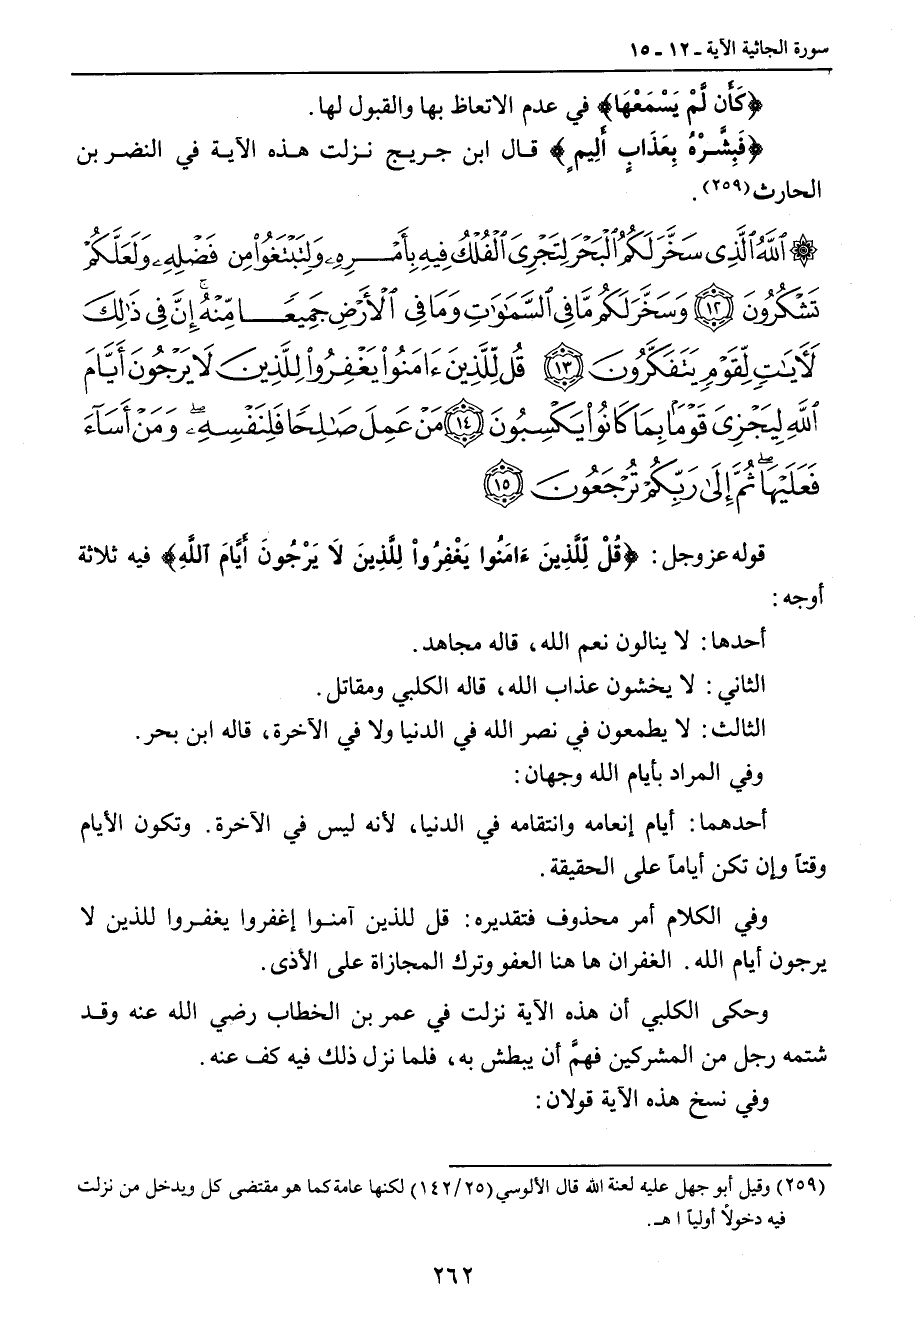 سورة الجاثية الآية ـ ١٢ ـ ١٥
﴿كَأَن لَّمْ يَسْمَعْهَا﴾ في عدم الاتعاظ بها والقبول لها.
﴿فَبَشِّرْهُ بِعَذَابٍ أَلِيمٍ﴾ قال ابن جريج نزلت هذه الآية في النضر بن
الحارث(٢٥٩).
۞ ٱللَّهُ ٱلَّذِى سَخَّرَ لَكُمُ ٱلْبَحْرَ لِتَجْرِىَ ٱلْفُلْكُ فِيهِ بِأَمْرِهِۦ وَلِتَبْتَغُوا۟ مِن فَضْلِهِۦ وَلَعَلَّكُمْ
تَشْكُرُونَ ١٢ وَسَخَّرَ لَكُم مَّا فِى ٱلسَّمَـٰوَٰتِ وَمَا فِى ٱلْأَرْضِ جَمِيعًا مِّنْهُ ۚ إِنَّ فِى ذَٰلِكَ
لَـَٔايَـٰتٍ لِّقَوْمٍ يَتَفَكَّرُونَ ١٣ قُل لِّلَّذِينَ ءَامَنُوا۟ يَغْفِرُوا۟ لِلَّذِينَ لَا يَرْجُونَ أَيَّامَ
ٱللَّهِ لِيَجْزِىَ قَوْمًۢا بِمَا كَانُوا۟ يَكْسِبُونَ ١٤ مَنْ عَمِلَ صَـٰلِحًا فَلِنَفْسِهِۦ ۖ وَمَنْ أَسَآءَ
فَعَلَيْهَا ۖ ثُمَّ إِلَىٰ رَبِّكُمْ تُرْجَعُونَ ١٥
قوله عز وجل: ﴿قُلْ لِّلَّذِينَ ءَامَنُوا يَغْفِرُواْ لِلَّذِينَ لَا يَرْجُونَ أَيَّامَ ٱللَّهِ﴾ فيه ثلاثة
أوجه:
أحدها: لا ينالون نعم الله، قاله مجاهد.
الثاني: لا يخشون عذاب الله، قاله الكلبي ومقاتل.
الثالث: لا يطمعون في نصر الله في الدنيا ولا في الآخرة، قاله ابن بحر.
وفي المراد بأيام الله وجهان:
أحدهما: أيام إنعامه وانتقامه في الدنيا، لأنه ليس في الآخرة. وتكون الأيام
وقتاً وإن تكن أياماً على الحقيقة.
وفي الكلام أمر محذوف فتقديره: قل للذين آمنوا إغفروا يغفروا للذين لا
يرجون أيام الله. الغفران ها هنا العفو وترك المجازاة على الأذى.
وحكى الكلبي أن هذه الآية نزلت في عمر بن الخطاب رضي الله عنه وقد
شتمه رجل من المشركين فهمَّ أن يبطش به، فلما نزل ذلك فيه كف عنه.
وفي نسخ هذه الآية قولان:
(٢٥٩) وقيل أبو جهل عليه لعنة الله قال الألوسي (١٤٢/٢٥) لكنها عامة كما هو مقتضى كل ويدخل من نزلت
فيه دخولاً أولياً ا هـ.
٢٦٢